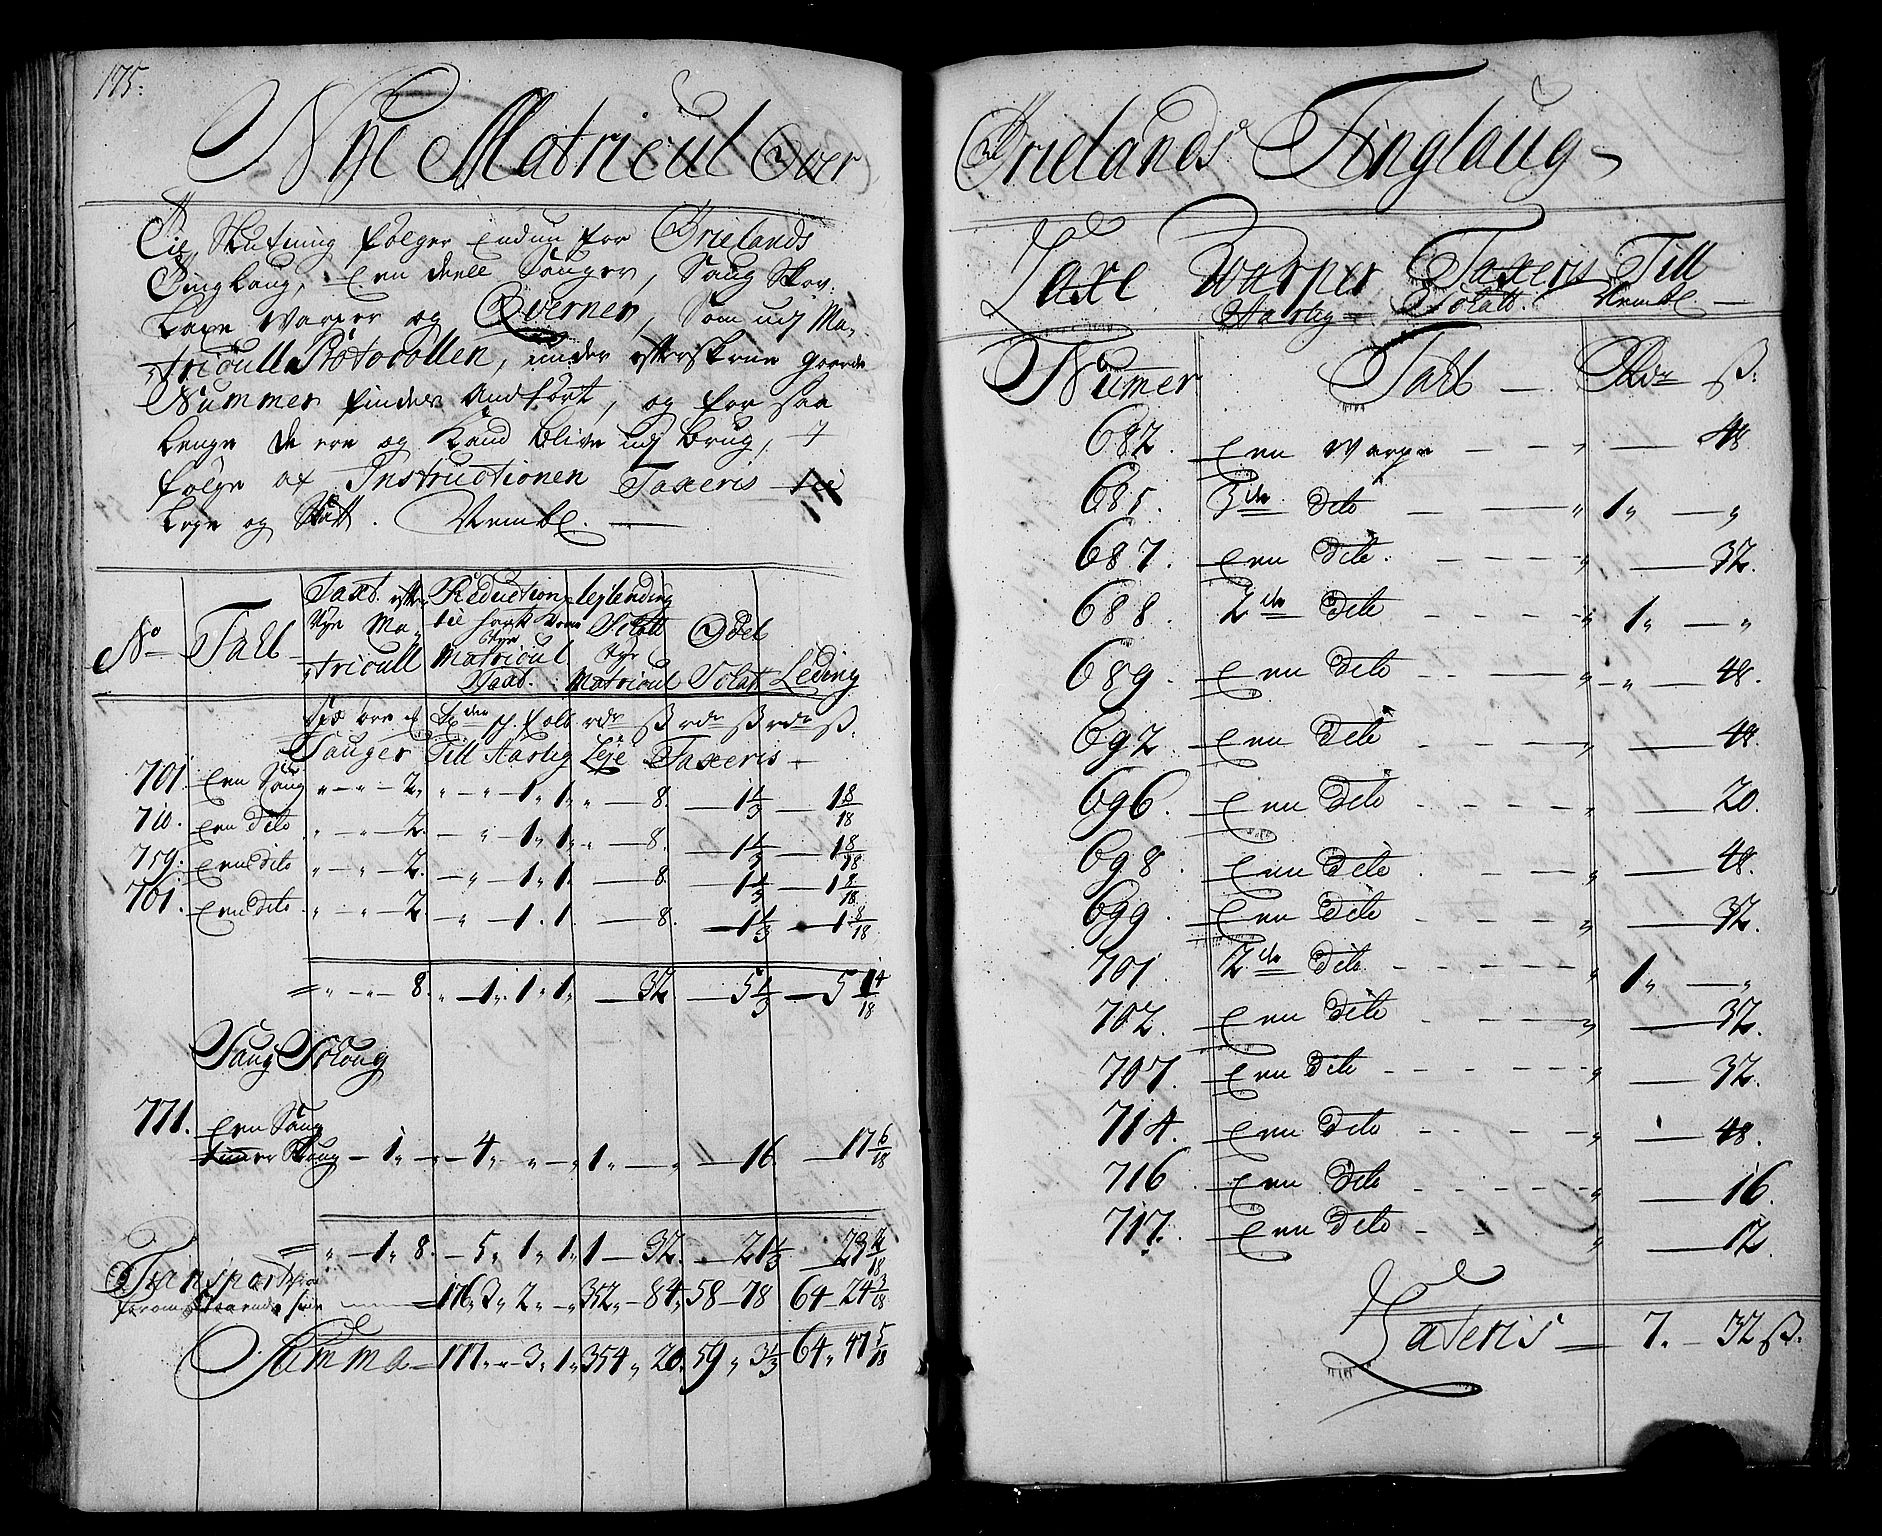 175.
Nye Matricul Over
Til Slutning følger endnu for Ørelands
Tinglaug, Een deell Sauger, Saug Skov,
Laxe Warper og Qverner, Som udj Ma-
triculls Protocollen, under efterskrevne gaarde
Nummer findes Andført, og for saa
lenge de ere og kand blive udj brug, I
følge af Instructionen Taxeris til
Leye og Skatt. Nembl.
No Tall Taxt. efter Reduction Leylending Odel
Nye Ma- til Skatt Nye
tricull Matricul Matricul Schatt Leding
Sauger Till Aarlig Leje Taxeris
701. Een Saug „ — „ — 2. „ — „ — 1 „ 1 „ — 8. — 1 1/3 — 1 8/18
710. Een dito „ — „ — 2. — „ — 1 „ 1 „ — 8. — 1 1/3 — 1 8/18
759. Een dito „ — „ — 2. — „ — 1 „ 1. — 8. — 1 1/3 — 1 8/18
761. Een dito „ — „ — 2. — „ — 1. 1. — 8. — 1 1/3 — 1 8/18
= „ — „ — 8. „ — 1 „ 1 „ 1 „ — 32. — 5 1/3 — 5 14/18
Saug Skoug
771. Een Saug
timer Skoug — 1 „ — 4 „ „ — „ 1 „ — „ — 16. — 17 6/18
= „ — 1 „ 8. — 5 „ 1 „ 1 „ 1 — 32. — 21 1/3 — 23 2/18
Transport fra
foromstaaende side = 176. 3 „ 2 „ — „ 352 „ — 84 „ 58 — 78 64 — 24 3/18
Summa — 177 „ — 3 „ 1 „ 354 „ 20. 59 „ 3 1/3 64 „ 47 5/18
Ørelands Tinglaug
Laxe Warper Taxeris Till
Aarlig Schatt. Nembl.
Numer Tall Rdr ß.
682. Een Warpe „ — 48.
685. 3de dito „ 1 „ — „
687. Een dito „ — 32.
688. 2de dito „ 1 „ — „
689. Een dito „ — „ — 48.
692. Een dito „ — 48.
696. Een dito „ — 20.
698. Een dito „ — 48.
699. Een dito „ — 32.
701. 2de dito „ 1 „ — „
702. Een dito „ — 32.
707. Een dito „ — 32.
714. Een dito „ — 48.
716 Een dito „ — 16.
717. Een dito „ — 12.
Lateris = 7. — 32 ß.